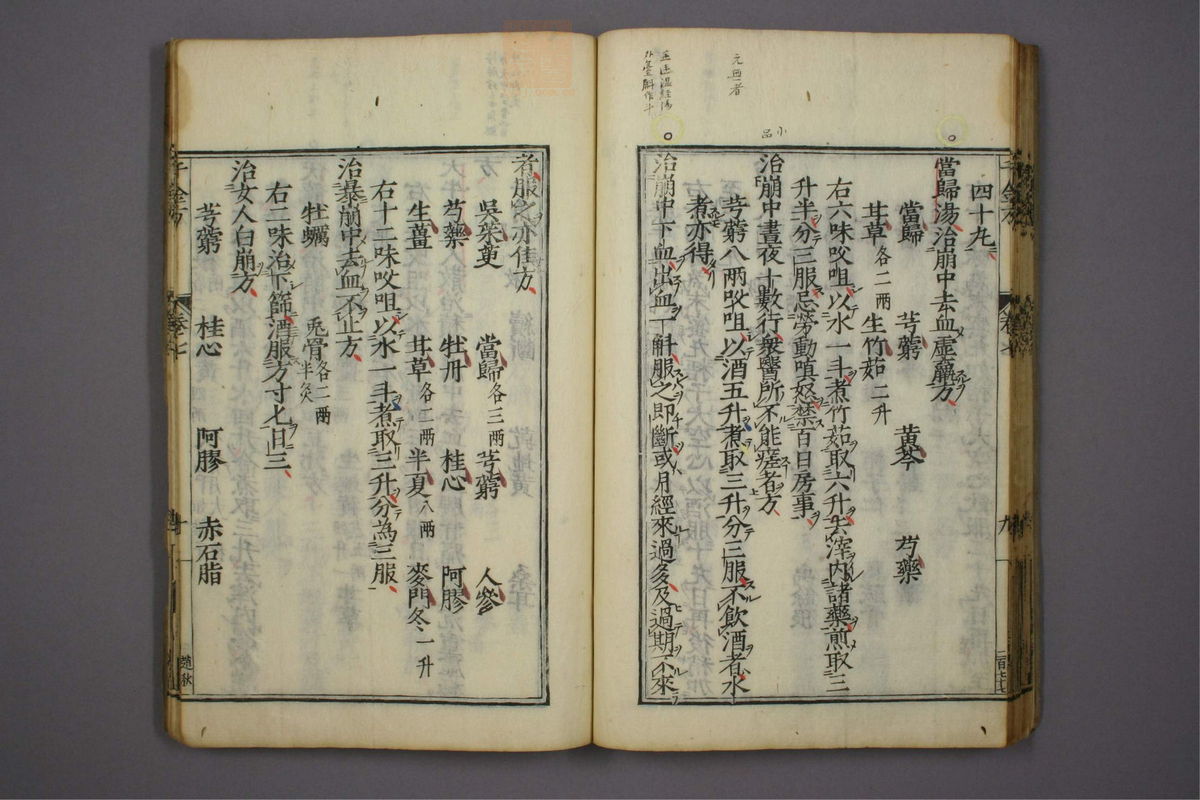 四十九
當歸湯治崩中去血虛羸方
當歸 芎藭 黃芩 芍藥
甘草各二兩 生竹茹二升
右六味㕮咀以水一斗煮竹茹取六升去滓內諸藥煎取三
升半分三服忌勞動嗔怒禁百日房事
治崩中晝夜十數行衆醫所不能瘥者方
芎藭八兩㕮咀以酒五升煮取三升分三服不飲酒者水
煮亦得
治崩中下血出血一斛服之即斷或月經來過多及過期不來
者服之亦佳方
吳茱萸 當歸各三兩 芎藭 人參
芍藥 牡丹 桂心 阿膠
生薑 甘草各二兩 半夏八兩 麥門冬一升
右十二味㕮咀以水一斗煮取三升分為三服
治暴崩中去血不止方
牡蠣 兎骨各二兩半炙
右二味治下篩酒服方寸匕日三
治女人白崩方
芎藭 桂心 阿膠 赤石脂
元無者
小品
外臺斛作斗
千金方
卷七
九
十
趙秋